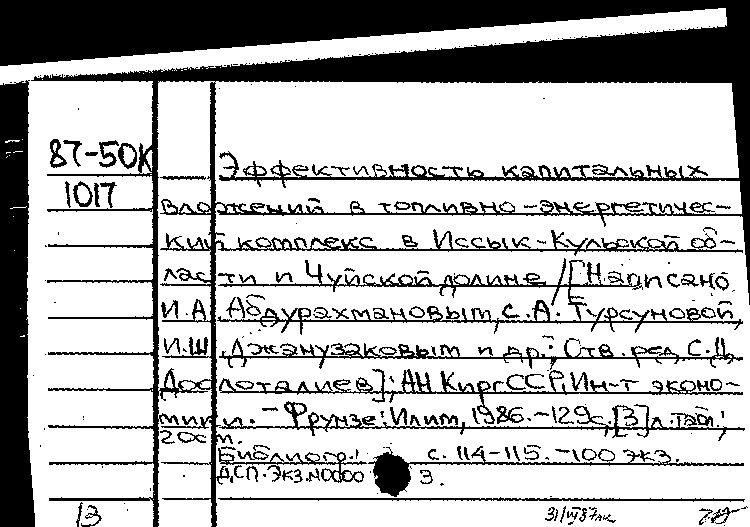 87-50К
1017
Эффективность капитальных
вложений в топливно-энергетичес-
кий комплекс в Иссык-Кульской об-
ласти и Чуйской долине / [Написано
И.А. Абдурахмановым, С.А. Турсуновой,
И.Ш. Джанузаковым и др.; Отв. ред. С.Ц.
Досполоталиев]; АН КиргССР, Ин-т эконо-
мики. - Фрунзе: Илим, 1986. - 129 с., [3] л. табл.;
20 см.
Библиогр.: с. 114-115. - 100 экз.
ДСП. Экз. N0000 3.
13